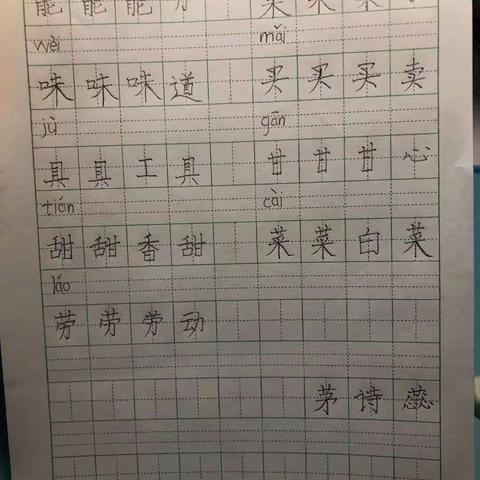 能 能 能 力
wèi mǎi
味 味 味 道 买 买 买 卖
jù gān
具 具 工 具 甘 甘 甘 心
tián cài
甜 甜 香 甜 菜 菜 白 菜
láo
劳 劳 劳 动
茅 诗 蕊